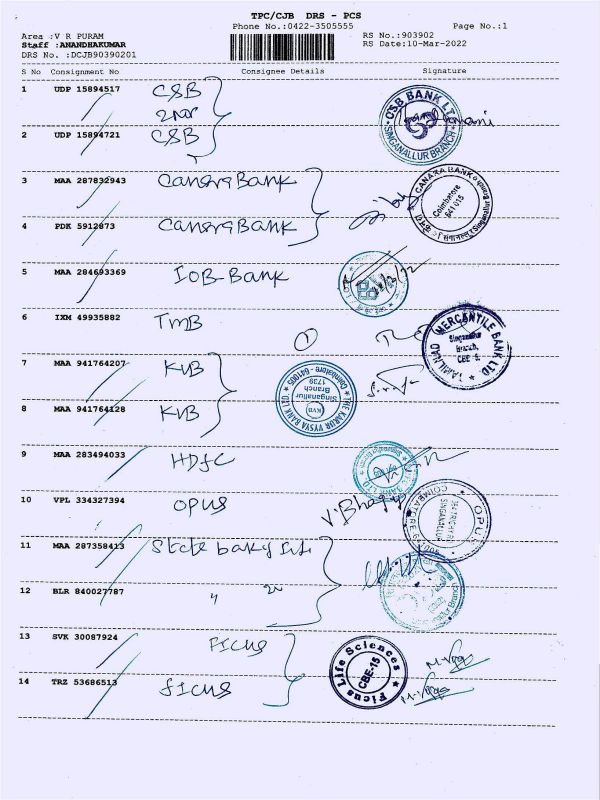 TPC/CJB DRS - PCS
Phone No.:0422-3505555 Page No.:1
Area :V R PURAM RS No.:903902
Staff :ANANDHAKUMAR RS Date:10-Mar-2022
DRS No. :DCJB90390201
S No Consignment No Consignee Details Signature
1 UDP 15894517 CSB
CSB BANK LTD
SINGANALLUR BRANCH
2 UDP 15894721 CSB
3 MAA 287832943 Canara Bank
CANARA BANK
Coimbatore
641 015
Singanallur
4 PDK 5912873 Canara Bank
5 MAA 284693369 IOB-Bank
6 IXM 49935882 TMB
TAMILNAD MERCANTILE BANK LTD
Singanallur
Branch,
CBE -5.
7 MAA 941764207 KVB
THE KARUR VYSYA BANK LTD
Singanallur
Branch
1739
Coimbatore - 641005
KVB
8 MAA 941764128 KVB
9 MAA 283494033 HDFC
10 VPL 334327394 OPUS
V. Bhagya
OPUS
COIMBATORE
SINGANALLUR
11 MAA 287358413 State
12 BLR 840027787 "
13 SVK 30087924 FICUS
Ficus Life Sciences
CBE-15
14 TRZ 53686513 ficus